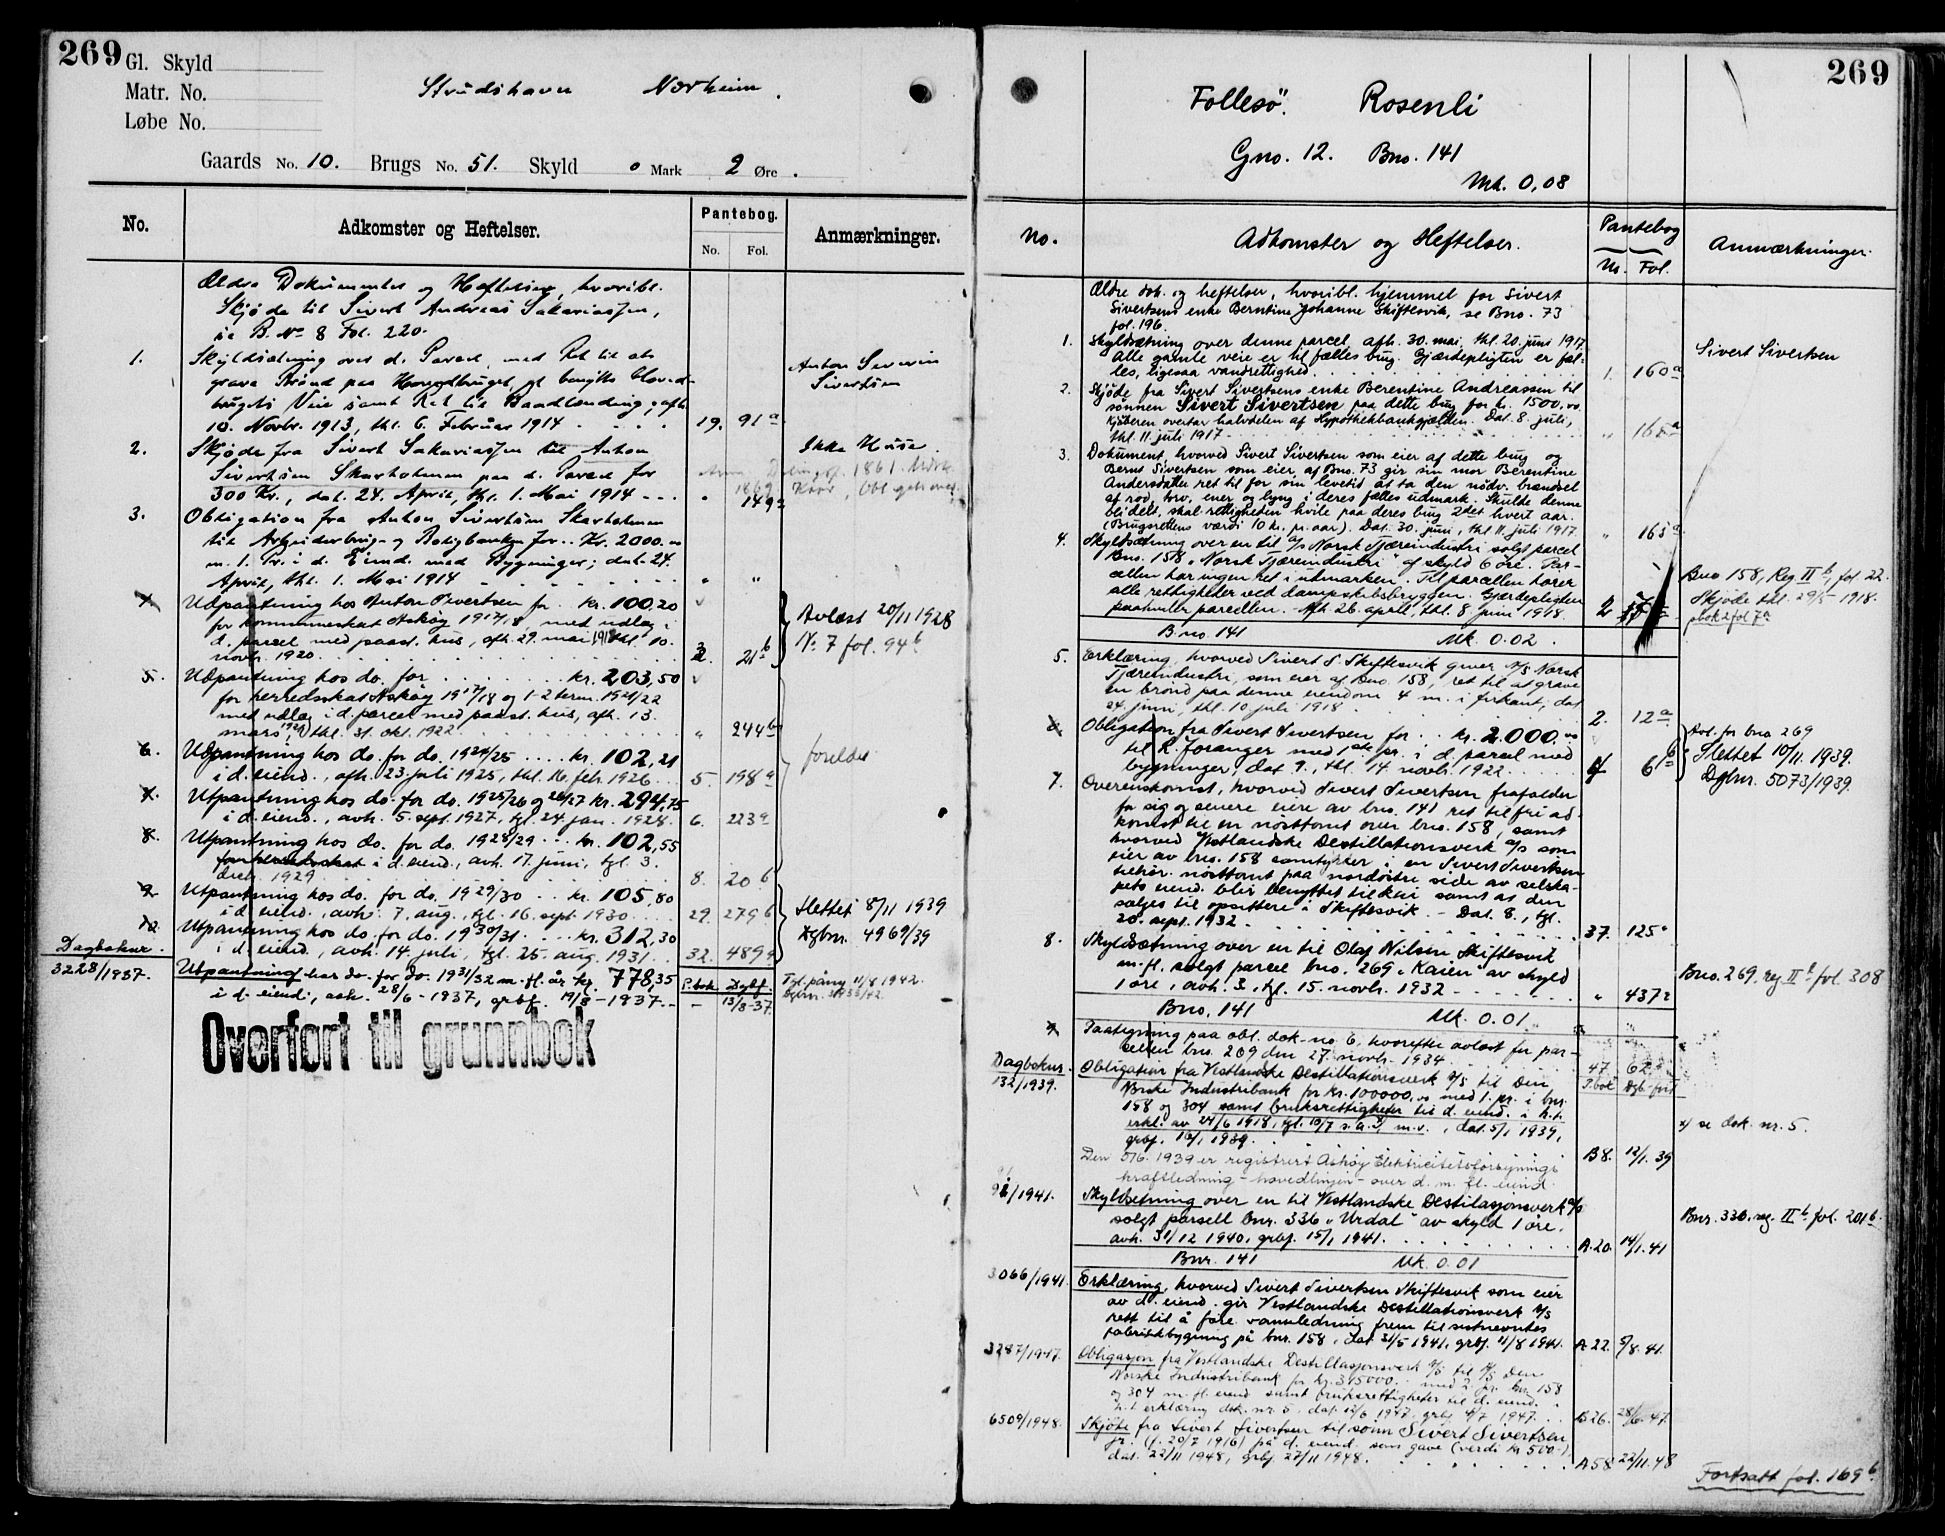 269
Gl. Skyld
Matr. No.
Løbe No.
Strudshavn Norheim.
Gaards No. 10. Brugs No. 51. Skyld 0 Mark 2 Øre.
No. Adkomster og Heftelser. Pantebog. Anmærkninger.
No. Fol.
Ældre Dokumenter og Heftelser, hvoribl.
Skjøde til Sivert Andreas Sakariassen,
se B. No 8 Fol. 220.
1. Skyldsætning over d. Parcel, med Ret til at
grave Brønd paa Hovedbruget, at benytte hoved-
brugets Veie samt Ret til Baadlænding; afh.
10. Novbr. 1913, thl. 6. Februar 1914 19. 91a
Anton Severin
Sivertsen
2. Skjøde fra Sivert Sakariassen til Anton
Sivertsen Skarholmen paa d. Parcel for
300 Kr., dat. 24. April, thl. 1. Mai 1914 " 149a
Ikke Huse
3. Obligation fra Anton Sivertsen Skarholmen
til Arbeiderbrug- og Boligbanken for Kr. 2000.00
m. 1. Pr. i d. Eiend. med Bygninger; dat. 24.
April, thl. 1. Mai 1914 " "
4. Udpantning hos Anton Sivertsen for kr. 100,20
for kommuneskat Askøy 1917/18, med udlæg i
d. parcel med paast. hus, afh. 29. mai 1918 thl. 10.
novbr. 1920 2. 21b
Avlæst 20/11 1928
No 7 fol. 94b
5. Udpantning hos do. for kr. 203,50
for herredsskat Askøy 1917/18 og 1-2 term. 1921/22
med udlæg i d. parcel med paast. hus, afh. 13.
mars 1922, thl. 31. okt. 1922 " 244b
6. Udpantning hos do. for do. 1924/25 kr. 102,21
i d. eiend., afh. 23. juli 1925, thl. 16. febr. 1926 5. 198a
foreldet
7. Utpantning hos do. for do. 1925/26 og 26/27 kr. 294,75
i d. eiend., avh. 5. sept. 1927, tgl. 24. jan. 1928. 6. 223a
8. Utpantning hos do. for do. 1928/29 kr. 102,55
for herredsskat i d. eiend., avh. 17. juni, tgl. 3.
1929 8. 20b
9. Utpantning hos do. for do. 1929/30 kr. 105,80
i d. eiend., avh. 7. aug., tgl. 16. sept. 1930 29. 279b
Slettet 8/11 1939
Dgbnr. 4969/39
10. Utpantning hos do. for do. 1930/31 kr. 312,30
i d. eiend., avh. 14. juli, tgl. 25. aug. 1931 32. 489a
Dagboknr.
3228/1937. Utpantning hos do. for do. 1931/32 m. fl. år kr. 778,35 P.bok Dgbf.
i d. eiend., avh. 28/6-1937, grbf. 19/8-1937. - 13/8-37.
Tgl. påny 11/8 1942.
Overført til grunnbok
269
Follesø. Rosenli
Gno. 12. Bno. 141
Mk. 0,08
No. Adkomster og Heftelser. Pantebog Anmærkninger.
No. Fol.
Ældre dok. og heftelser, hvoribl. hjemmel for Sivert
Sivertsens enke Berntine Johanne Skiftesvik, se Bno. 73
fol. 196.
1. Skyldsætning over denne parcel, afh. 30. mai, thl. 20. juni 1917
Alle gamle veie er til fælles brug. Gjærdepligten er fæl-
les, ligesaa vandrettighed 1. 160a
Sivert Sivertsen
2. Skjøde fra Sivert Sivertsens enke Berentine Andreassen til
sønnen Sivert Sivertsen paa dette brug for kr. 1500,00.
Kjøberen overtar halvdelen af Hypothekbankgjælden. Dat. 8. juli,
thl. 11. juli 1917 " 165a
3. Dokument, hvorved Sivert Sivertsen som eier af dette brug og
Bernt Sivertsen som eier af Bno. 73 gir sin mor Berentine
Andersdatter ret til for sin levetid at ta den nødv. brændsel
af rod, torv, ener og lyng i deres fælles udmark. Skulde denne
bli delt, skal rettigheden hvile paa deres brug 2det hvert aar.
(Brugsrettens værdi 10 kr. pr. aar). Dat. 30. juni, thl. 11. juli 1917. " 165a
4. Skyldsætning over en til A/S Norsk Tjæreindustri solgt parcel
Bno. 158 "Norsk Tjæreindustri" af skyld 6 øre. Par-
cellen har ingen ret i udmarken. Til parcellen hører
alle rettigheter ved dampskibsbryggen. Gjærdepligten
paahviler parcellen. Afh. 26. april, thl. 8. juni 1918. 2
Bno 158, Reg. IIb, fol 22.
Skjøde thl. 29/5-1918.
pbok 2 fol 7a
B.no. 141 Mk. 0.02.
5. Erklæring, hvorved Sivert S. Skiftesvik giver A/S Norsk
Tjæreindustri, som eier af Bno. 158, ret til at grave
en brønd paa denne eiendom 4 m. i firkant; dat
24. juni, thl. 10. juli 1918. 2. 12a
6. Obligation fra Sivert Sivertsen for kr. 2.000.00
til R. Joranger med 1ste pr. i d. parcel med
bygninger, dat. 9., thl. 14. novbr. 1922 4 6b
Avl. for bno 269
Slettet 10/11 1939.
Dgbnr. 5073/1939.
7. Overenskomst, hvorved Sivert Sivertsen frafalder
for sig og senere eiere av bno. 141 ret til fri ad-
komst til en nøsttomt over bno. 158, samt
hvorved Vestlandske Destillationsverk A/S som
eier av bno. 158 samtykker i en Sivert Sivertsen
tilhør. nøsttomt paa nordøstre side av selska-
pets eiend. blir benyttet til kai samt at den
sælges til opsittere i Skiftesvik. - Dat. 8., tgl.
20. sept. 1932 37. 125a
8. Skyldsætning over en til Olaf Nilsen Skiftesvik
m. fl. solgt parcel bno. 269 "Kaien" av skyld
1 øre, avh. 3., tgl. 15. novbr. 1932 " 437a
Bno. 269. reg. IIb fol. 308
Bno. 141 Mk. 0.01.
9. Paategning paa obl. dok-no. 6, hvorefter avlæst for par-
cellen bno. 269 den 27. novbr. 1934 47. 62
Dagboknr.
132/1939. Obligation fra Vestlandske Destillationsverk A/S til Den P.bok Dgb-ført
Norske Industribank for kr. 100000,00 med 1. pr. i bnr.
158 og 304 samt bruksrettigheter til d. eiend. i h.t.
erkl. av 24/6 1918, tgl. 10/7 s.a. x) m.v., dat. 5/1 1939,
grbf. 1939. B8. 12/1. 39
x) se dok. nr. 5.
Den 5/6. 1939 er registrert Askøy Elektricitetsforsynings
kraftledning - hovedlinjen - over d. m. fl. eiend.
1941. Skyldsetning over en til Vestlandske Destilasjonsverk A/S
solgt parsell bnr. 336 "Urdal" av skyld 1 øre.
avh. 31/12 1940, grbf. 15/1 1941. A.20. 14/1.41
Bnr. 336. reg. IIb fol. 201b.
Bnr. 141 Mk. 0.01
3066/1941. Erklæring, hvorved Sivert Sivertsen Skiftesvik som eier
av d. eiend. gir Vestlandske Destillationsverk A/S
rett til å føre vannledning frem til sistnevntes
fabrikkbygning på bnr. 158, dat. 31/5 1941, grbf. 11/8 1941. A.22. 5/8.41.
3287/1947. Obligasjon fra Vestlandske Destillasjonsverk A/S til A/S Den
Norske Industribank for kr. 315000.- med 2. pr. bnr. 158
og 304 m. fl. eiend. samt bruksrettigheter til d. eiend. i
h.t. erklæring dok. nr. 5. dat. 12/6 1947, grbf. 4/7 1947. B26. 28/6. 47.
6509/1948. Skjøte fra Sivert Sivertsen til sønn Sivert Sivertsen
jr. (f. 20/7 1916) på d. eiend. som gave (verdi kr 500.-),
dat. 22/11 1948, grbf. 27/11 1948. A58 22/11.48
Fortsatt fol. 169b.